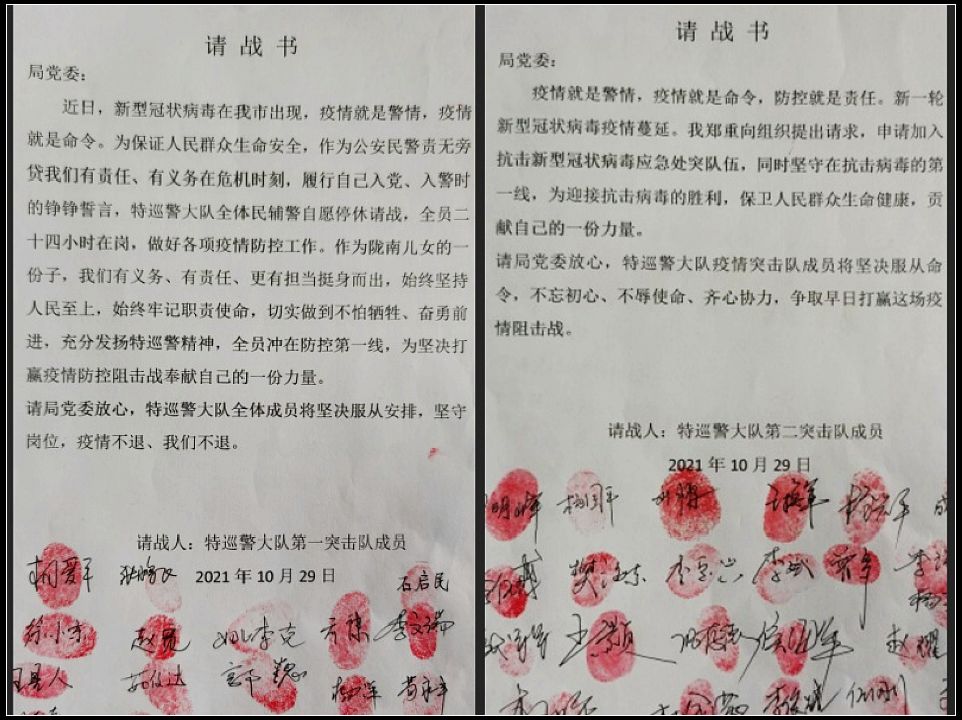 请战书
局党委：
近日，新型冠状病毒在我市出现，疫情就是警情，疫情
就是命令。为保证人民群众生命安全，作为公安民警责无旁
贷我们有责任、有义务在危机时刻，履行自己入党、入警时
的铮铮誓言，特巡警大队全体民辅警自愿停休请战，全员二
十四小时在岗，做好各项疫情防控工作。作为陇南儿女的一
份子，我们有义务、有责任、更有担当挺身而出，始终坚持
人民至上，始终牢记职责使命，切实做到不怕牺牲、奋勇前
进，充分发扬特巡警精神，全员冲在防控第一线，为坚决打
赢疫情防控阻击战奉献自己的一份力量。
请局党委放心，特巡警大队全体成员将坚决服从安排，坚守
岗位，疫情不退、我们不退。
请战人：特巡警大队第一突击队成员
2021 年 10 月 29 日
石启民
赵亮
李克
李文瑞
请战书
局党委：
疫情就是警情，疫情就是命令，防控就是责任。新一轮
新型冠状病毒疫情蔓延。我郑重向组织提出请求，申请加入
抗击新型冠状病毒应急处突队伍，同时坚守在抗击病毒的第
一线，为迎接抗击病毒的胜利，保卫人民群众生命健康，贡
献自己的一份力量。
请局党委放心，特巡警大队疫情突击队成员将坚决服从命
令，不忘初心、不辱使命、齐心协力，争取早日打赢这场疫
情阻击战。
请战人：特巡警大队第二突击队成员
2021 年 10 月 29 日
赵耀